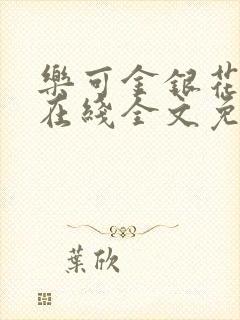 樂可金銀花
在綫全文免
葉欣